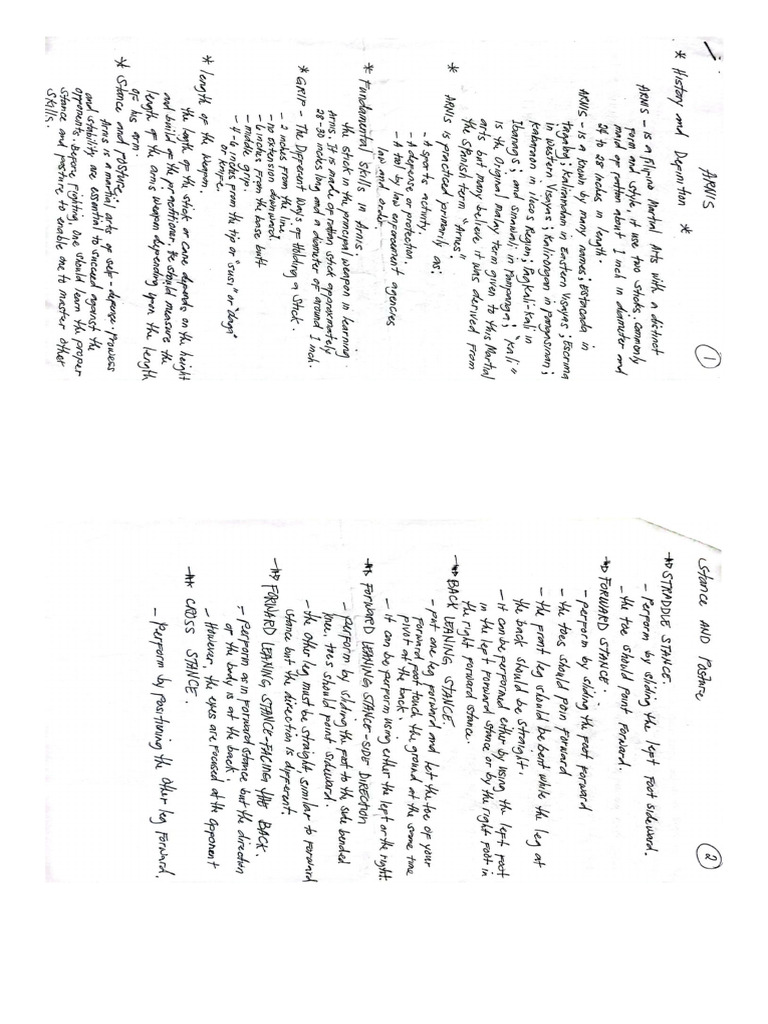 ARNIS
1
* History and Definition *
ARNIS - is a Filipino Martial Arts with a distinct
form and style. it use two sticks, commonly
maid of rattan about 1 inch in diameter and
24 to 28 inches in length.
ARNIS - is a known by many names; Estocada in
tagalog; Kaliradman in Eastern Visayas; Escrima
in Western Visayas; Kalirongan in Pangasinan;
Kabaroan in Ilocos Region; Pagkali-kali in
Ibanag; and Sinawali in Pampanga; "Kali"
is the Original malay term given to this Martial
arts but many believe it was derived from
the Spanish term "Arnes".
* ARNIS is practiced primarily as:
- A sports activity.
- A defense or protection.
- A tool by law enforcement agencies
law and order.
* Fundamental Skills in Arnis;
the stick in the principal weapon in learning
Arnis. It is made of rattan stick approximately
28-30 inches long and a diameter of around 1 inch.
* GRIP - The Different Ways of Holding a Stick.
- 2 inches from the line.
- no extension downward.
- 6 inches from the base butt
- middle grip.
- 4-6 inches from the tip or "susi" or
or knife.
* length of the weapon.
the length of the stick or cane depends on the height
and build of the practitioner. He should measure the
length of the arms weapon depending upon the length
of his arm.
* Stance and posture.
Arnis is a martial arts of self-defense. Prowess
and stability are essential to succeed against the
opponents. Before Fighting, One should learn the proper
stance and posture to enable one to master other
Skills.
Stance AND Posture
2
STRADDLE STANCE.
- Perform by sliding the left foot sideward.
- the toe should point forward.
FORWARD STANCE.
- perform by sliding the foot forward
- the toes should poin forward
- the front leg should be bent while the leg at
the back should be straight.
- it can be performed either by using the left foot
in the left forward stance or by the right foot in
the right forward stance.
BACK LEANING STANCE.
- put one leg forward and let the toe of your
forward foot touch the ground at the same time
pivot at the back.
- it can be perform using either the left or the right.
FORWARD LEANING STANCE-SIDE DIRECTION
- perform by sliding the foot to the side bended
knee, toes should point sideward.
- the other leg must be straight similar to forward
stance but the direction is different.
FORWARD LEANING STANCE-FACING THE BACK.
- perform as in forward stance but the direction
of the body is at the back.
- However, the eyes are focused at the opponent
CROSS STANCE.
- Perform by positioning the other leg forward.